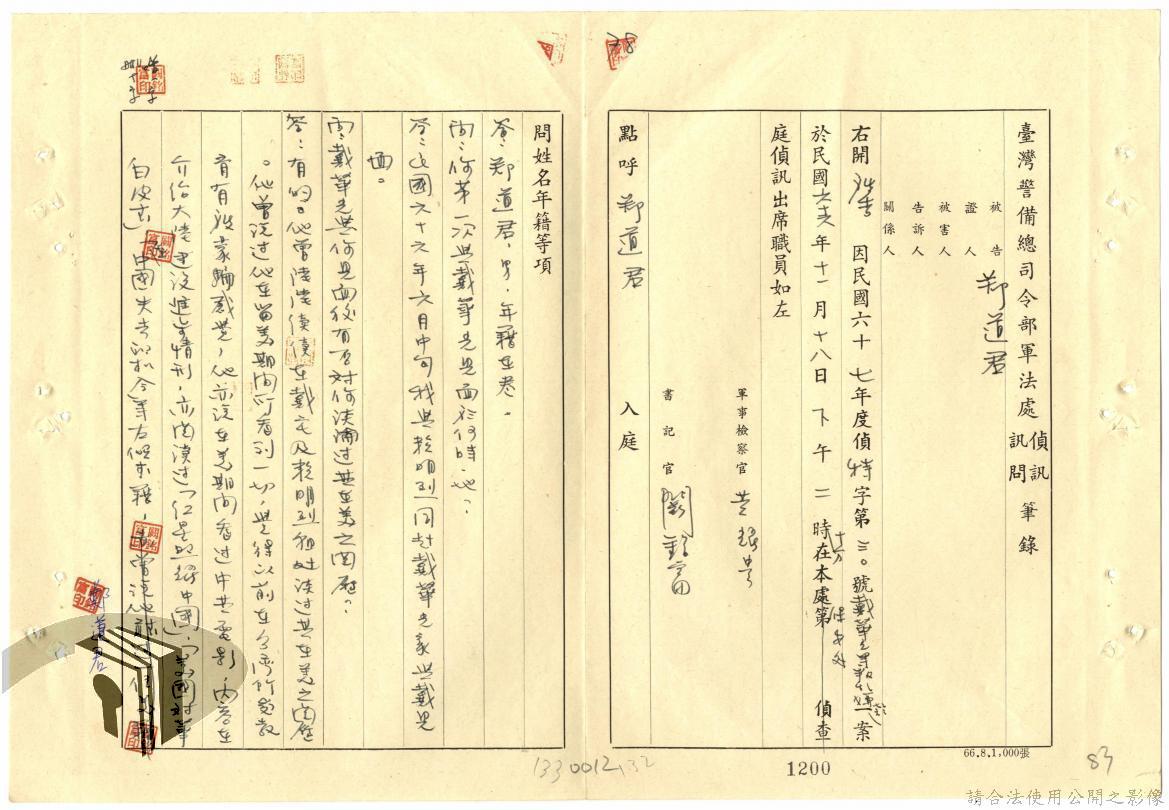 臺灣警備總司令部軍法處偵訊訊問筆錄
被告
證人
被害人
告訴人
關係人
鄭道君
右開 因民國六十七年度偵特字第三〇號戴華光等叛亂嫌一案
於民國六六年十一月十八日下午二時十分在本處第 偵查
庭偵訊出席職員如左
軍事檢察官
書記官
點呼 鄭道君 入庭
66.8.1,000張
問姓名年籍等項
答:鄭道君,男,年籍在卷。
問:你第一次與戴華光見面於何時、地?
答:民國六十六年六月中旬我與賴明烈一同赴戴華光家與戴見
面。
問:戴華光與你見面後有否對你談論過其在美之閱歷?
答:有的。他曾陸陸續續在戴宅及賴明烈 談過其在美之閱歷
。他曾說過他在留美期間所看到一切,覺得以前在台灣所受教
育有被蒙騙感覺,他亦說在美期間看過中共電影,內容在
介紹大陸 進步情形,亦閱讀過「紅星照耀中國」、「美國對華
白皮書」、「中國 」等左傾書籍,
鄭道君
78
1200
83
133 0012 132
請合法使用公開之影像